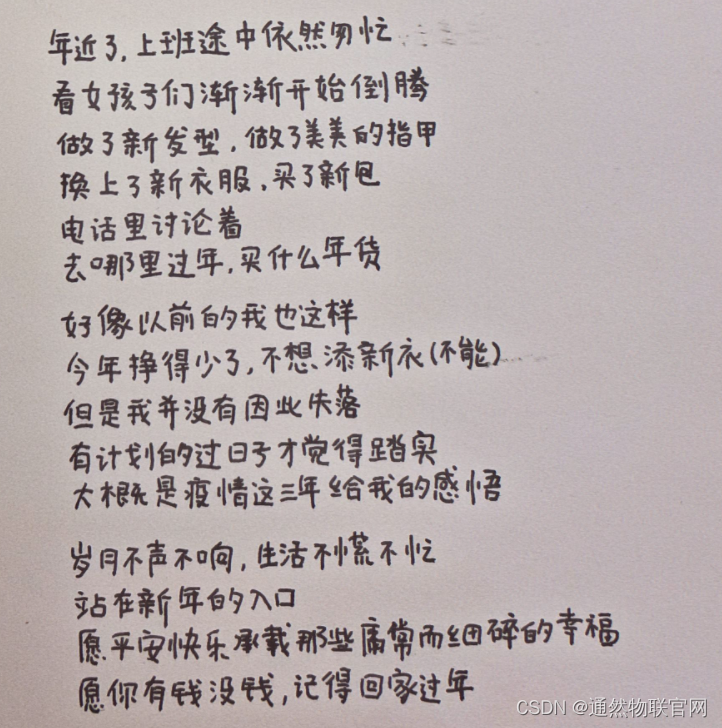 年近了，上班途中依然匆忙
看女孩子们渐渐开始倒腾
做了新发型，做了美美的指甲
换上了新衣服，买了新包
电话里讨论着
去哪里过年，买什么年货
好像以前的我也这样
今年挣得少了，不想添新衣(不能)
但是我并没有因此失落
有计划的过日子才觉得踏实
大概是疫情这三年给我的感悟
岁月不声不响，生活不慌不忙
站在新年的入口
愿平安快乐承载那些庸常而细碎的幸福
愿你有钱没钱，记得回家过年
CSDN @通然物联官网